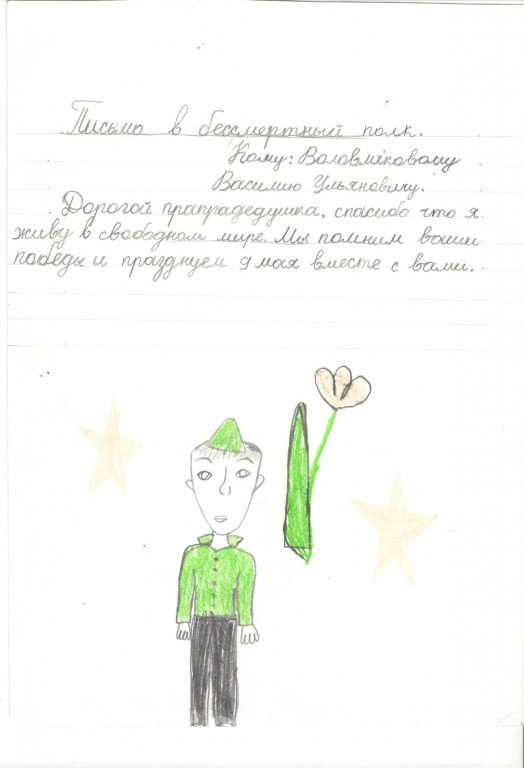 Письмо в бессмертный полк.
Кому: Воловміковому
Василию Ульяновичу.
Дорогой прапрадедушка, спасибо что я
живу в свободном мире. Мы помним ваши
победы и празднуем 9 мая вместе с вами.